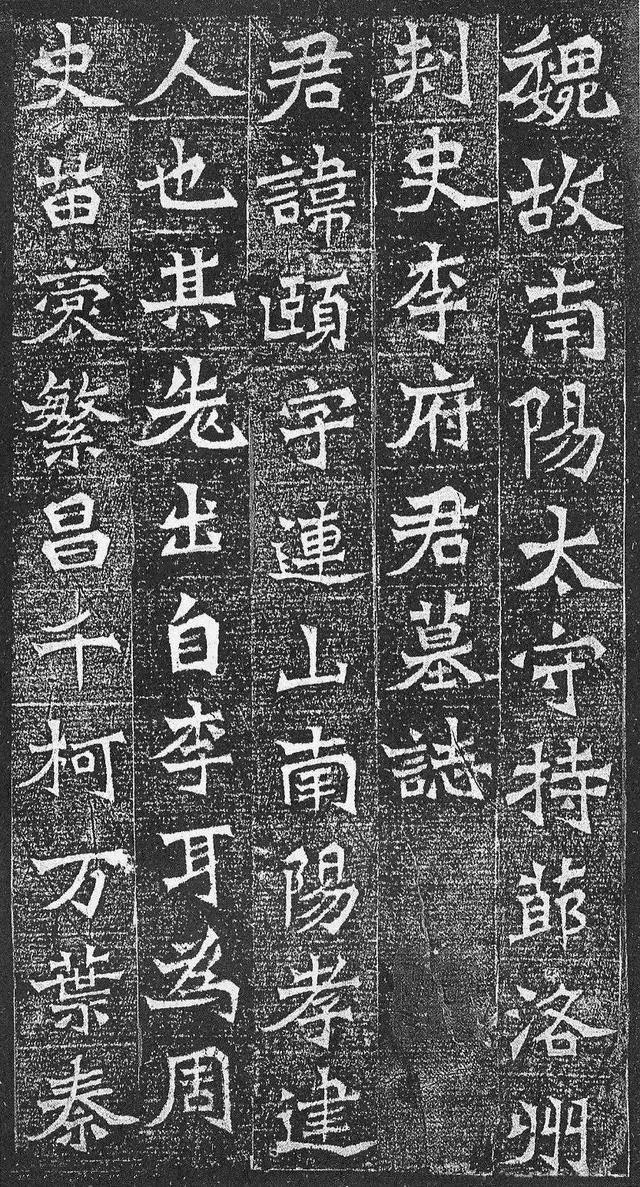 魏故南陽太守持莭洛州
刾史李府君墓誌
君諱頤字連山南陽孝建
人也其先出自李耳為周
史苗裔繁昌千柯万葉秦